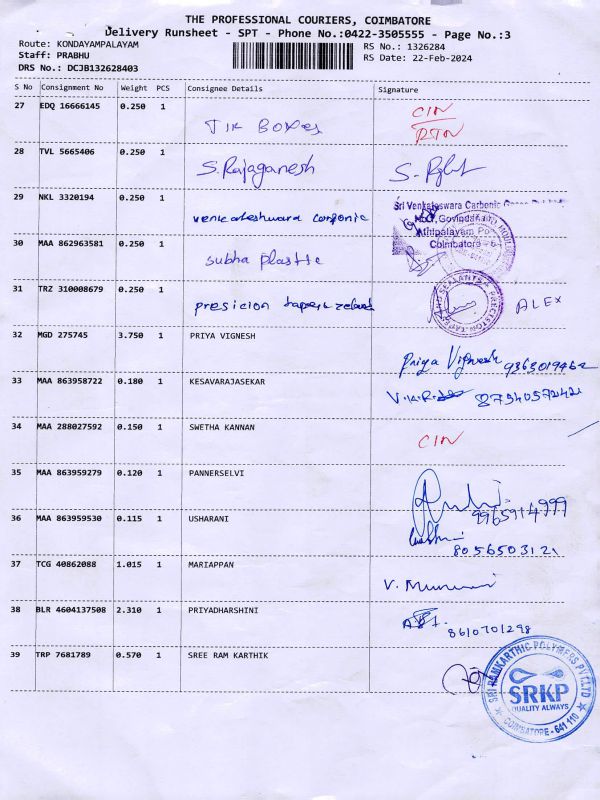 THE PROFESSIONAL COURIERS, COIMBATORE
Delivery Runsheet - SPT - Phone No.:0422-3505555 - Page No.:3
Route: KONDAYAMPALAYAM RS No.: 1326284
Staff: PRABHU RS Date: 22-Feb-2024
DRS No.: DCJB132628403
S No Consignment No Weight PCS Consignee Details Signature
27 EDQ 16666145 0.250 1 TJK BOXES CIN
RTN
28 TVL 5665406 0.250 1 S.Rajaganesh
29 NKL 3320194 0.250 1 venkateshwara corbonic
Sri Venkateswara Carbonic
Govindanaic
Athipalayam Po
Coimbatore - 6
30 MAA 862963581 0.250 1 subha plastic
31 TRZ 310008679 0.250 1 presicion ALEX
32 MGD 275745 3.750 1 PRIYA VIGNESH Priya Vignesh 9363019462
33 MAA 863958722 0.180 1 KESAVARAJASEKAR 8754057242
34 MAA 288027592 0.150 1 SWETHA KANNAN CIN
35 MAA 863959279 0.120 1 PANNERSELVI 9965914999
36 MAA 863959530 0.115 1 USHARANI 8056503121
37 TCG 40862088 1.015 1 MARIAPPAN
38 BLR 4604137508 2.310 1 PRIYADHARSHINI 8610701298
39 TRP 7681789 0.570 1 SREE RAM KARTHIK
SRI RAMKARTHIC POLYMERS PVT LTD
SRKP
QUALITY ALWAYS
COIMBATORE - 641 110